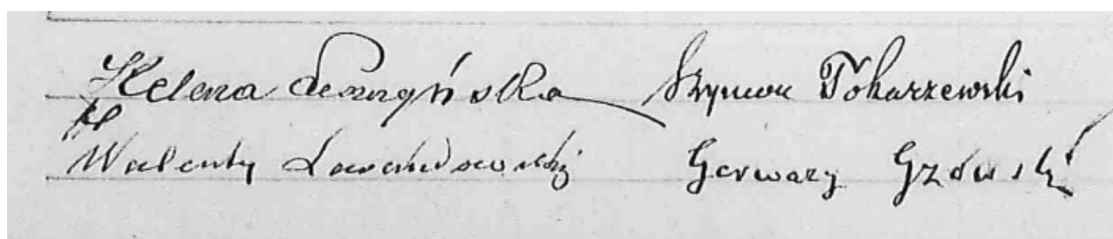 Helena Szymon Tokarzewski
Walenty Lewandowski Gerwazy Gzowski